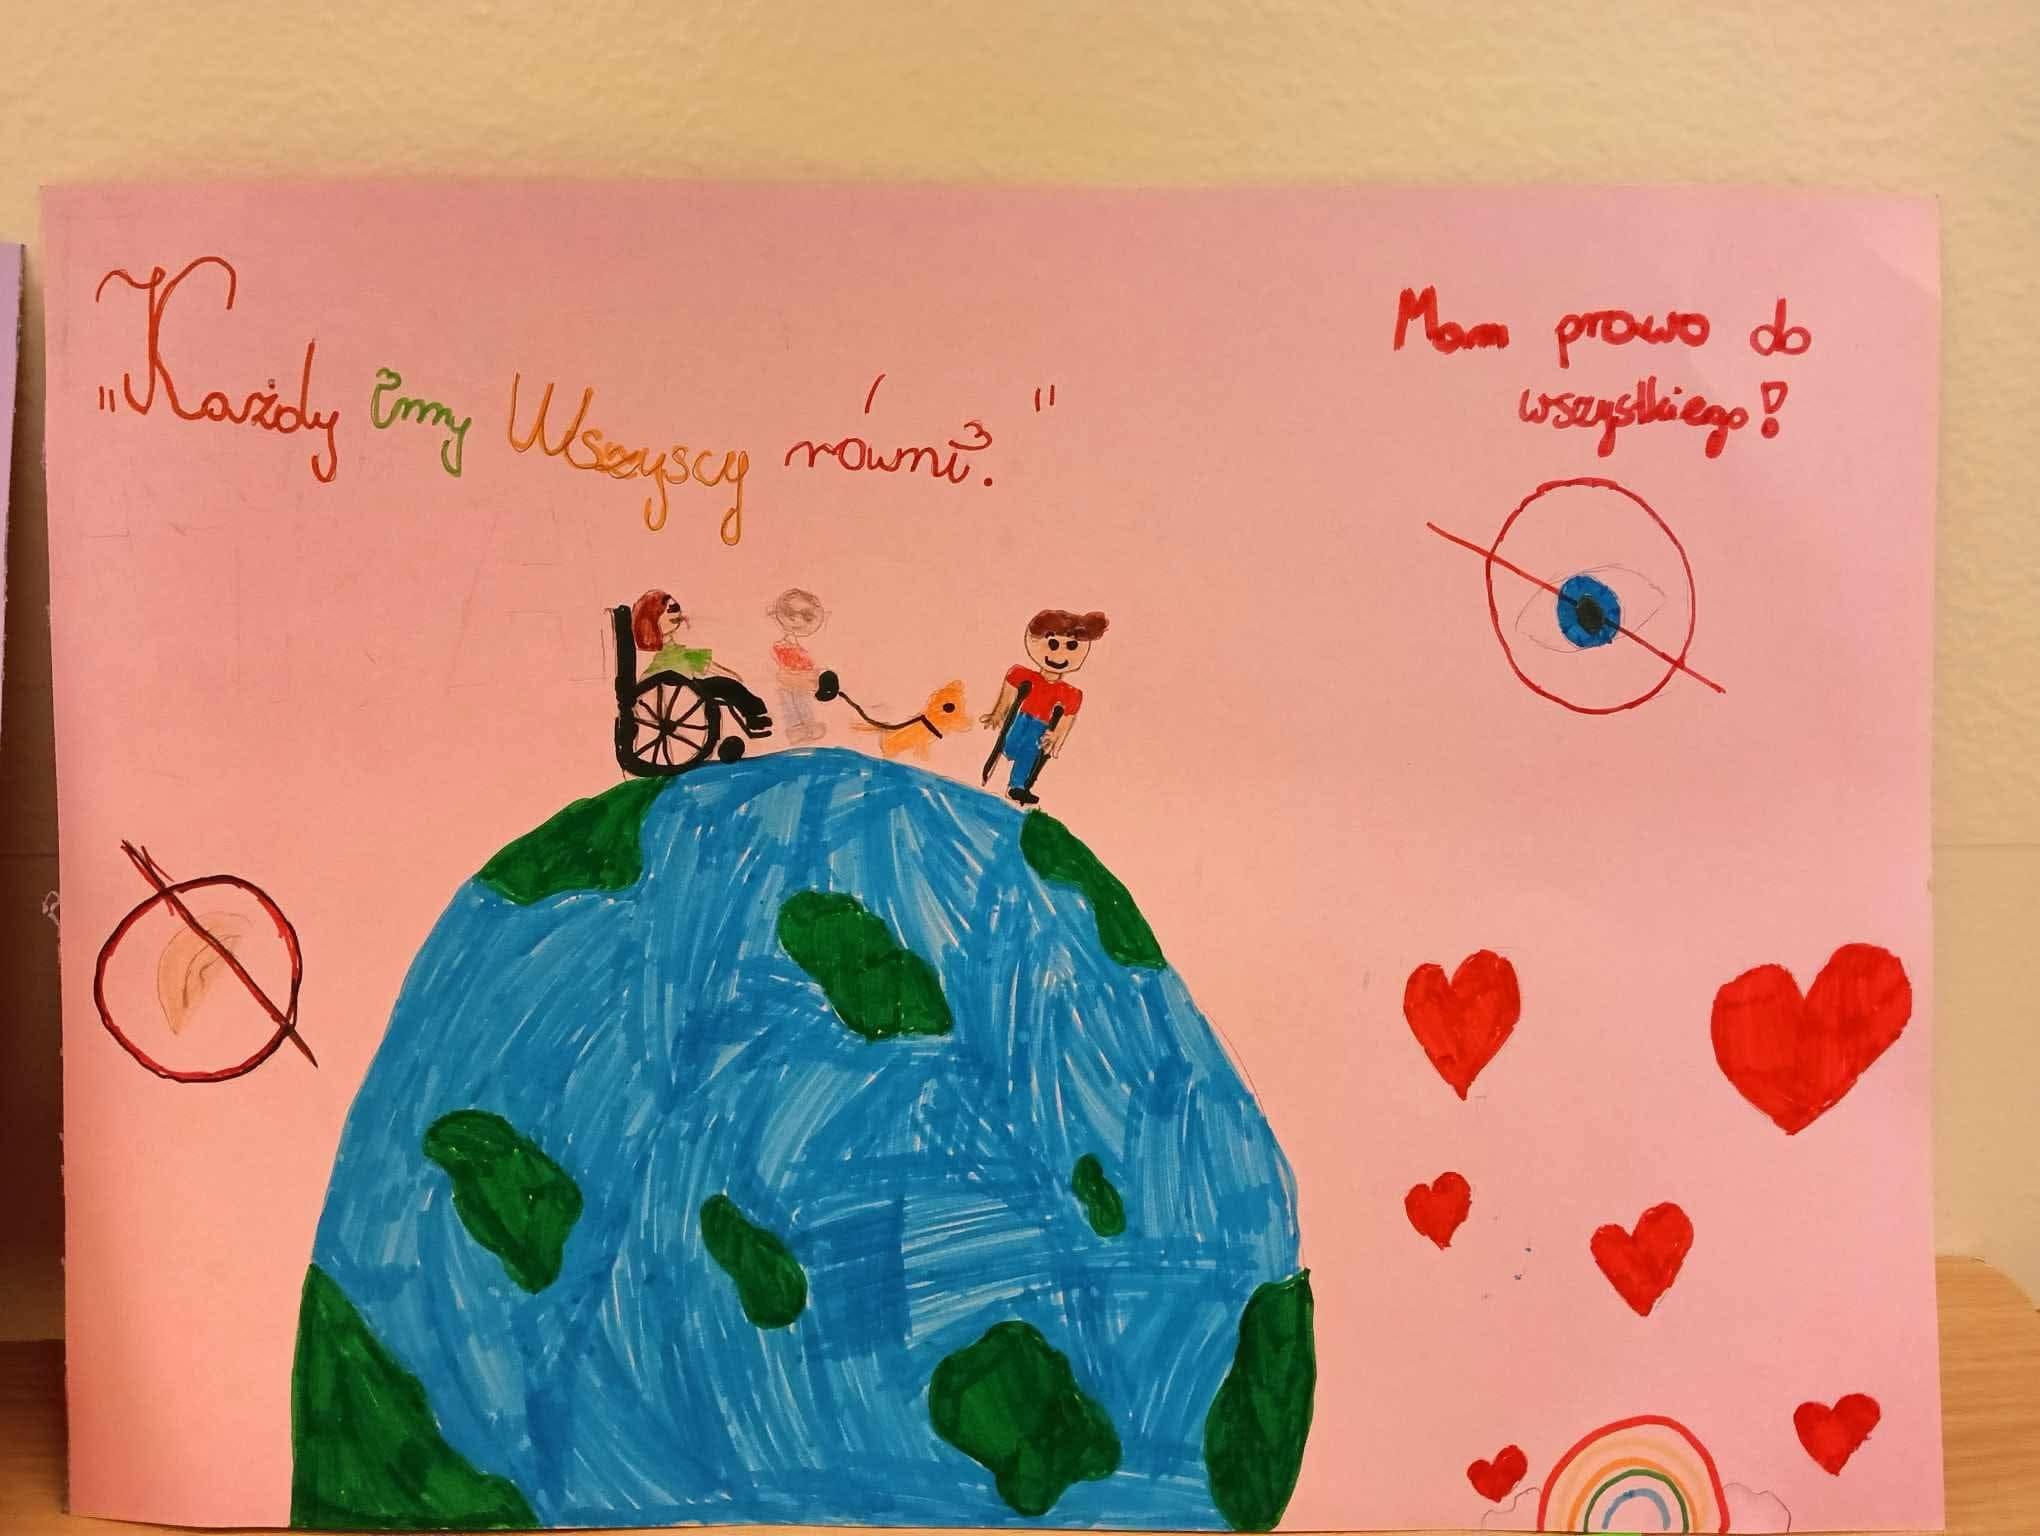 "Każdy inny Wszyscy równi."
Mam prawo do
wszystkiego!